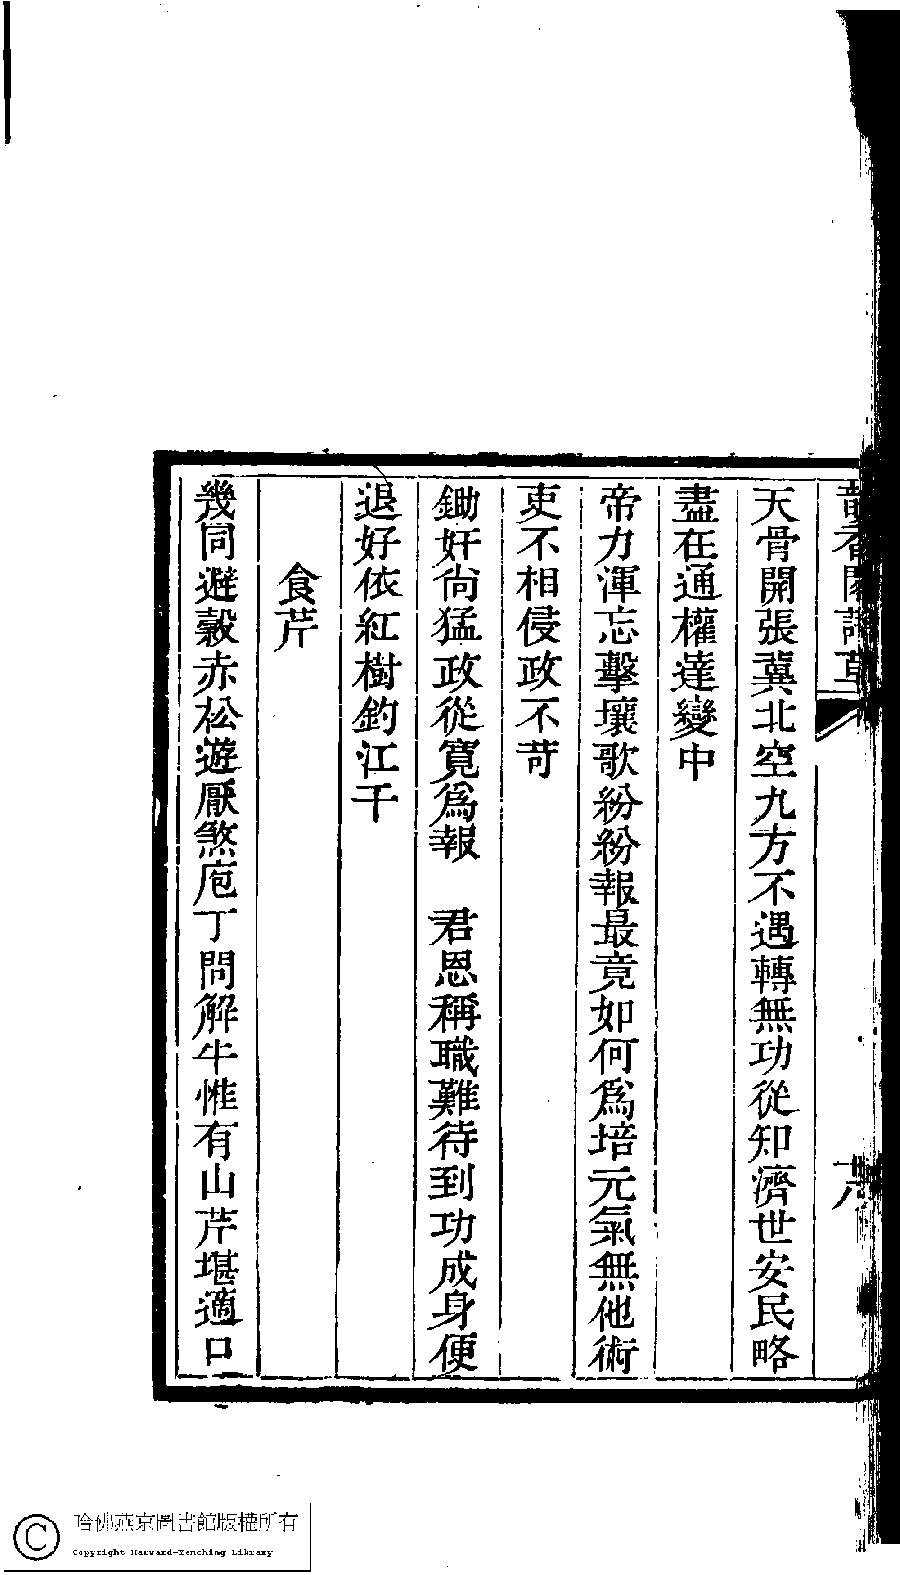 天骨開張冀北空九方不遇轉無功從知濟世安民略
盡在通權達變中
帝力渾忘擊壤歌紛紛報最竟如何爲培元氣無他術
吏不相侵政不苛
鋤奸尙猛政從寬爲報 君恩稱職難待到功成身便
退好依紅樹釣江干
食芹
幾同避穀赤松遊厭煞庖丁問解牛惟有山芹堪適口
哈佛燕京圖書館版權所有
Copyright Harvard-Yenching Library